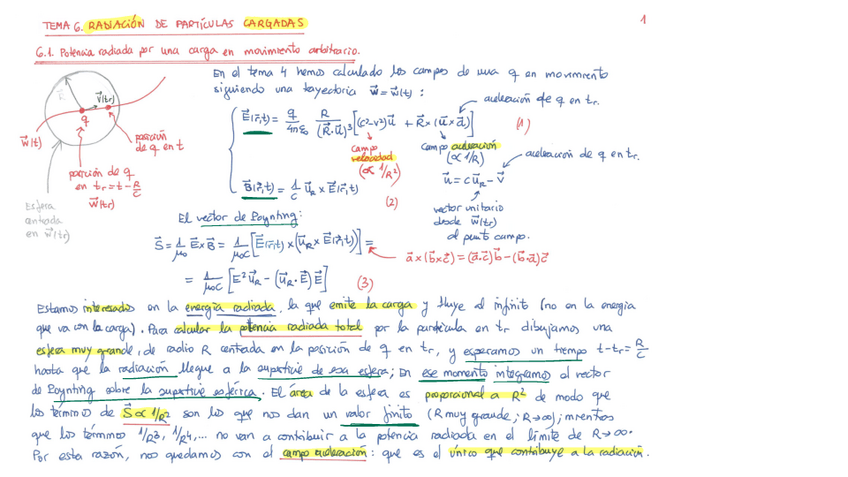 TEMA 6. RADIACIÓN DE PARTÍCULAS CARGADAS
1
6.1. Potencia radiada por una carga en movimiento arbitrario.
En el tema 4 hemos calculado los campos de una q en movimiento
siguiendo una trayectoria w⃗ = w⃗(t) :
aceleración de q en tr.
E⃗(r⃗,t) = q/4πε₀ R/(R⃗·u⃗)³ [(c²-v²)u⃗ + R⃗×(u⃗×a⃗)] (1)
campo velocidad (∝ 1/R²)
campo aceleración (∝ 1/R)
aceleración de q en tr.
u⃗ = c u⃗R - v⃗
B⃗(r⃗,t) = 1/c u⃗R × E⃗(r⃗,t) (2)
vector unitario
desde w⃗(tr)
al punto campo.
v⃗(tr)
q
w⃗(t)
posición
de q en t
posición de q
en tr = t - R/c
w⃗(tr)
Esfera
centrada
en w⃗(tr)
El vector de Poynting:
S⃗ = 1/μ₀ E⃗×B⃗ = 1/μ₀c [E⃗(r⃗,t) × (u⃗R × E⃗(r⃗,t))] =
a⃗×(b⃗×c⃗) = (a⃗·c⃗)b⃗ - (b⃗·a⃗)c⃗
= 1/μ₀c [E² u⃗R - (u⃗R · E⃗) E⃗] (3)
Estamos interesados en la energía radiada, la que emite la carga y fluye al infinito (no en la energía
que va con la carga). Para calcular la potencia radiada total por la partícula en tr dibujamos una
esfera muy grande, de radio R centrada en la posición de q en tr, y esperamos un tiempo t-tr = R/c
hasta que la radiación llegue a la superficie de esa esfera; En ese momento integramos el vector
de Poynting sobre la superficie esférica. El área de la esfera es proporcional a R² de modo que
los términos de S⃗ ∝ 1/R² son los que nos dan un valor finito (R muy grande; R→∞); mientras
que los términos 1/R³, 1/R⁴,... no van a contribuir a la potencia radiada en el límite de R→∞.
Por esta razón, nos quedamos con el campo aceleración: que es el único que contribuye a la radiación.